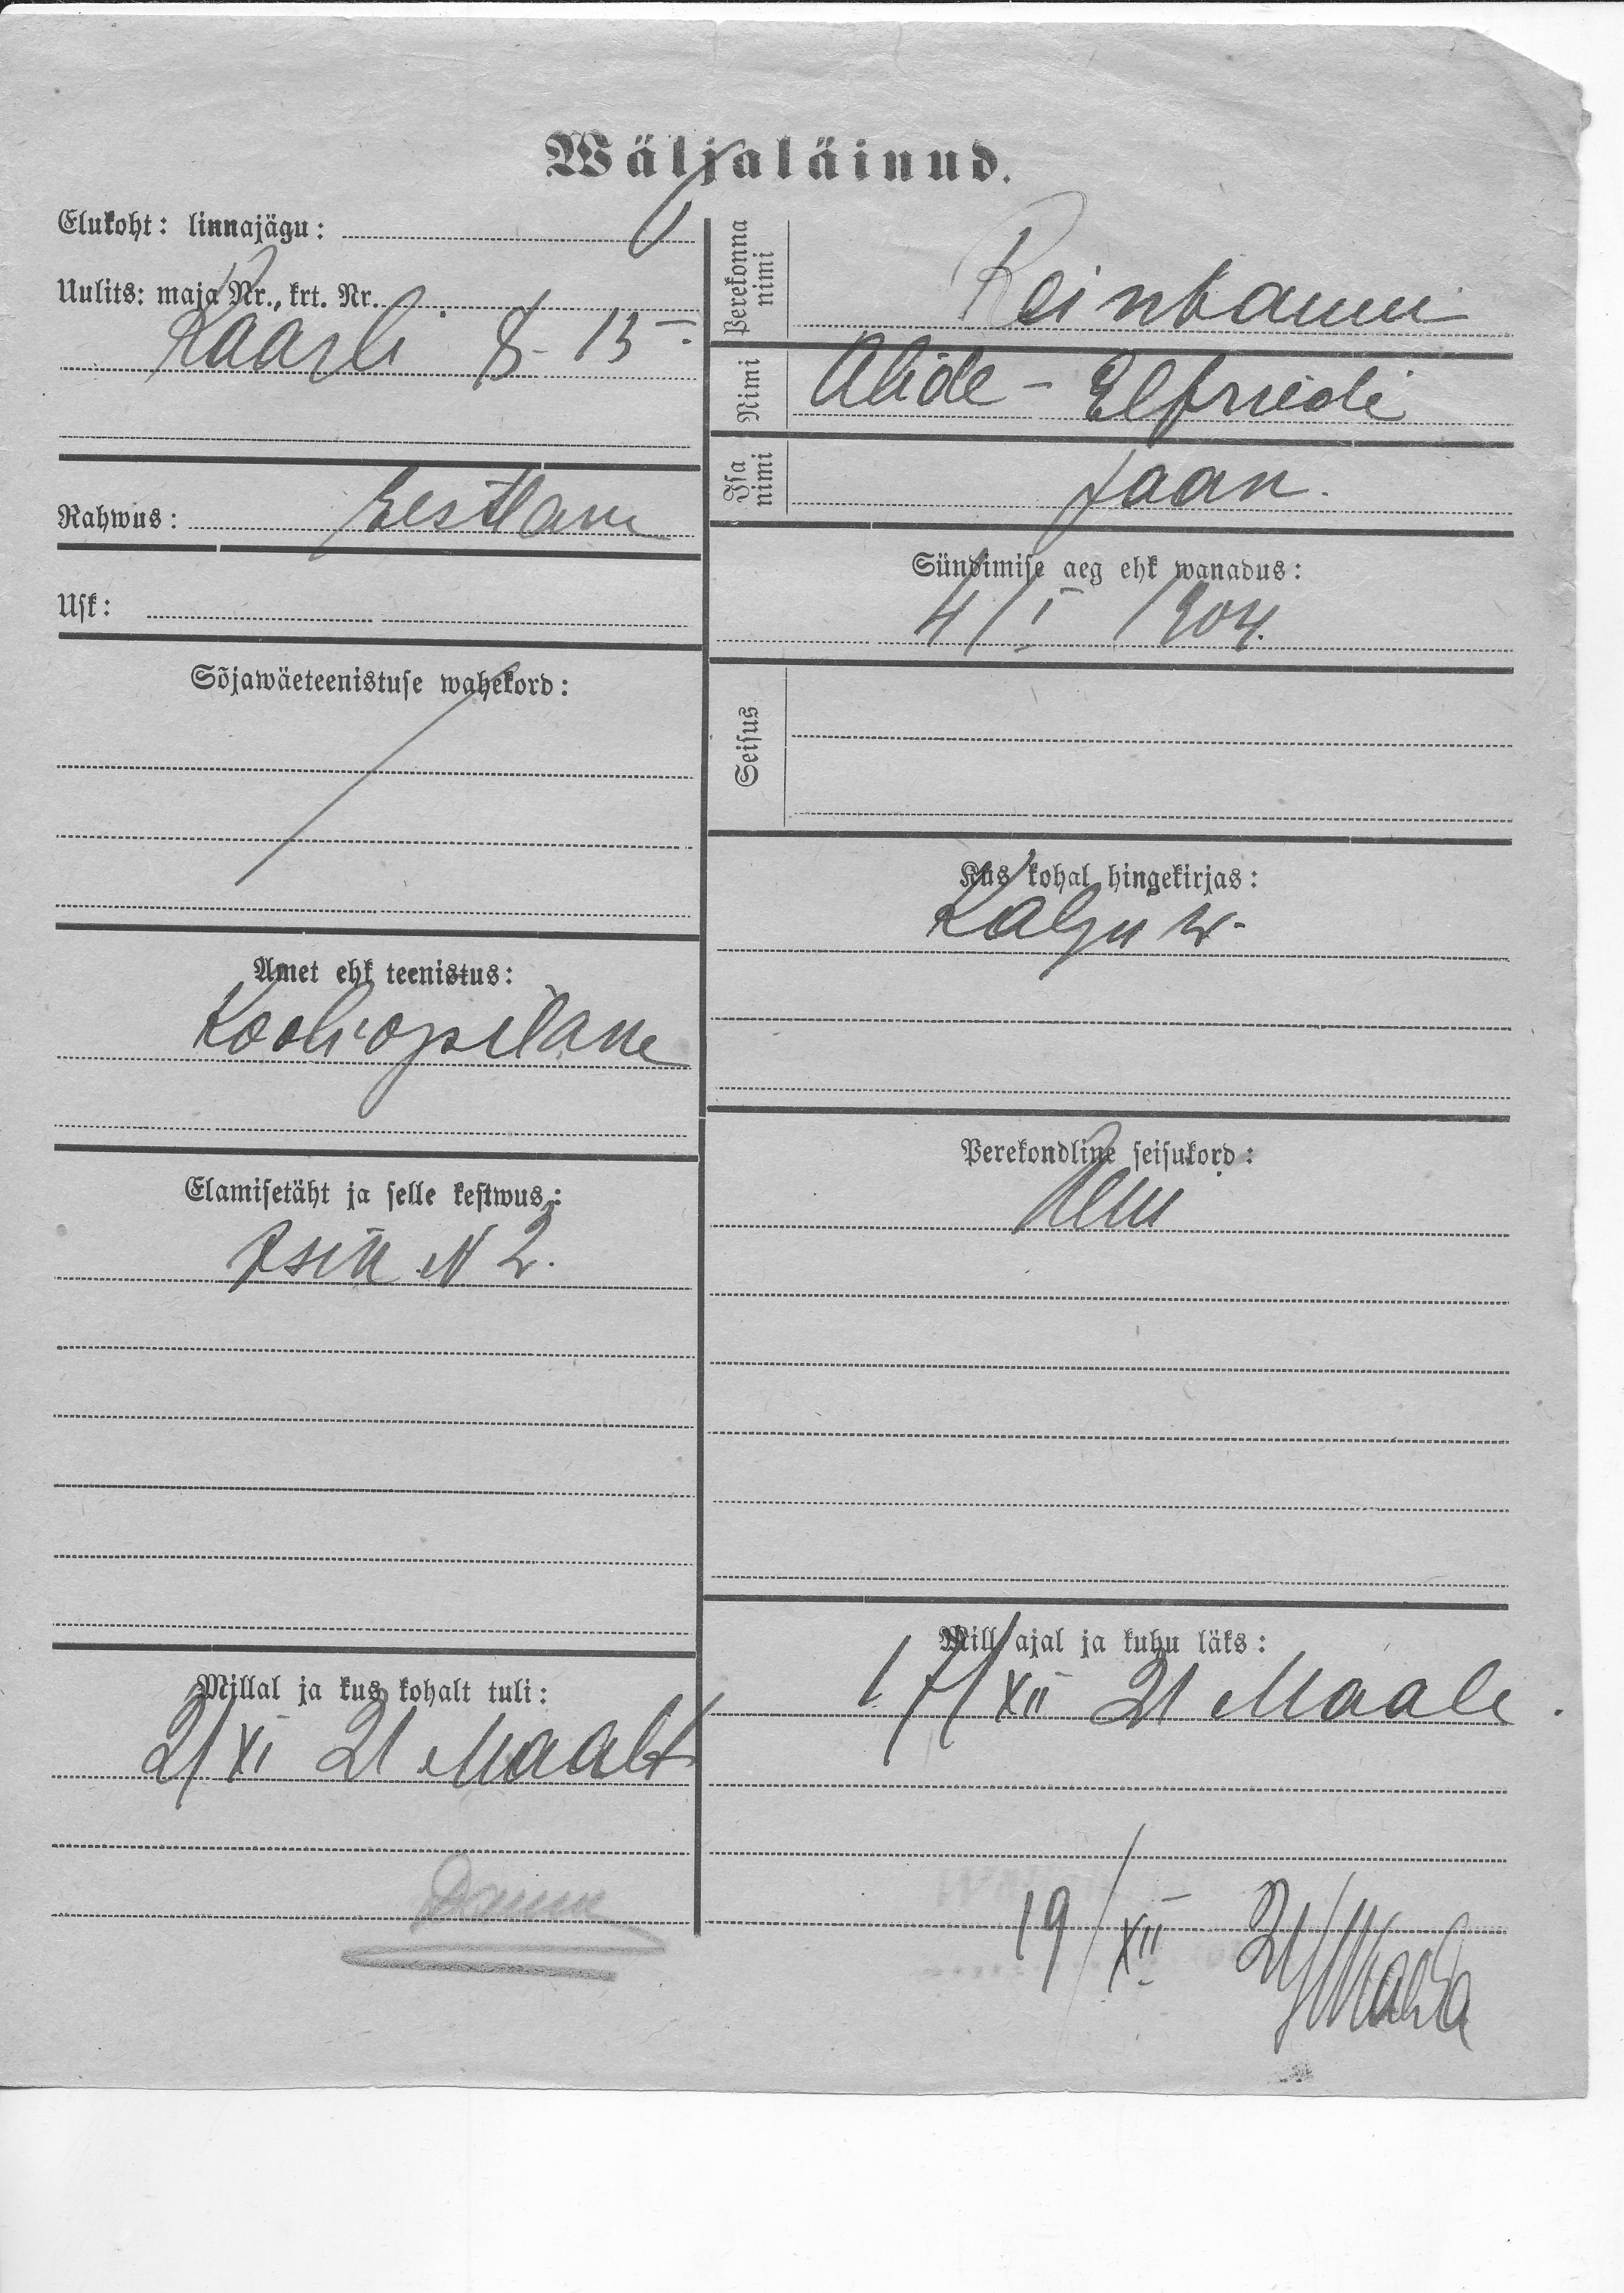 Wäljaläinud.
Elukoht: linnajägu:
Uulits: maja Nr., krt. Nr.
Kaarli 8 - 13 -
Rahwus: Eestlane
Usk:
Sõjawäeteenistuse wahekord:
Amet ehk teenistus:
Kooliopilane
Elamisetäht ja selle kestwus:
N 2.
Millal ja kus kohalt tuli:
2/XI 21 Maalt
Perekonna nimi
Nimi
Alide - Elfriede
Isa nimi
Jaan.
Sündimise aeg ehk wanadus:
4/I 1904.
Seisus
Kus kohal hingekirjas:
w.
Perekondline seisukord:
Mill ajal ja kuhu läks:
17/XII 21 Maale.
19/XII 21